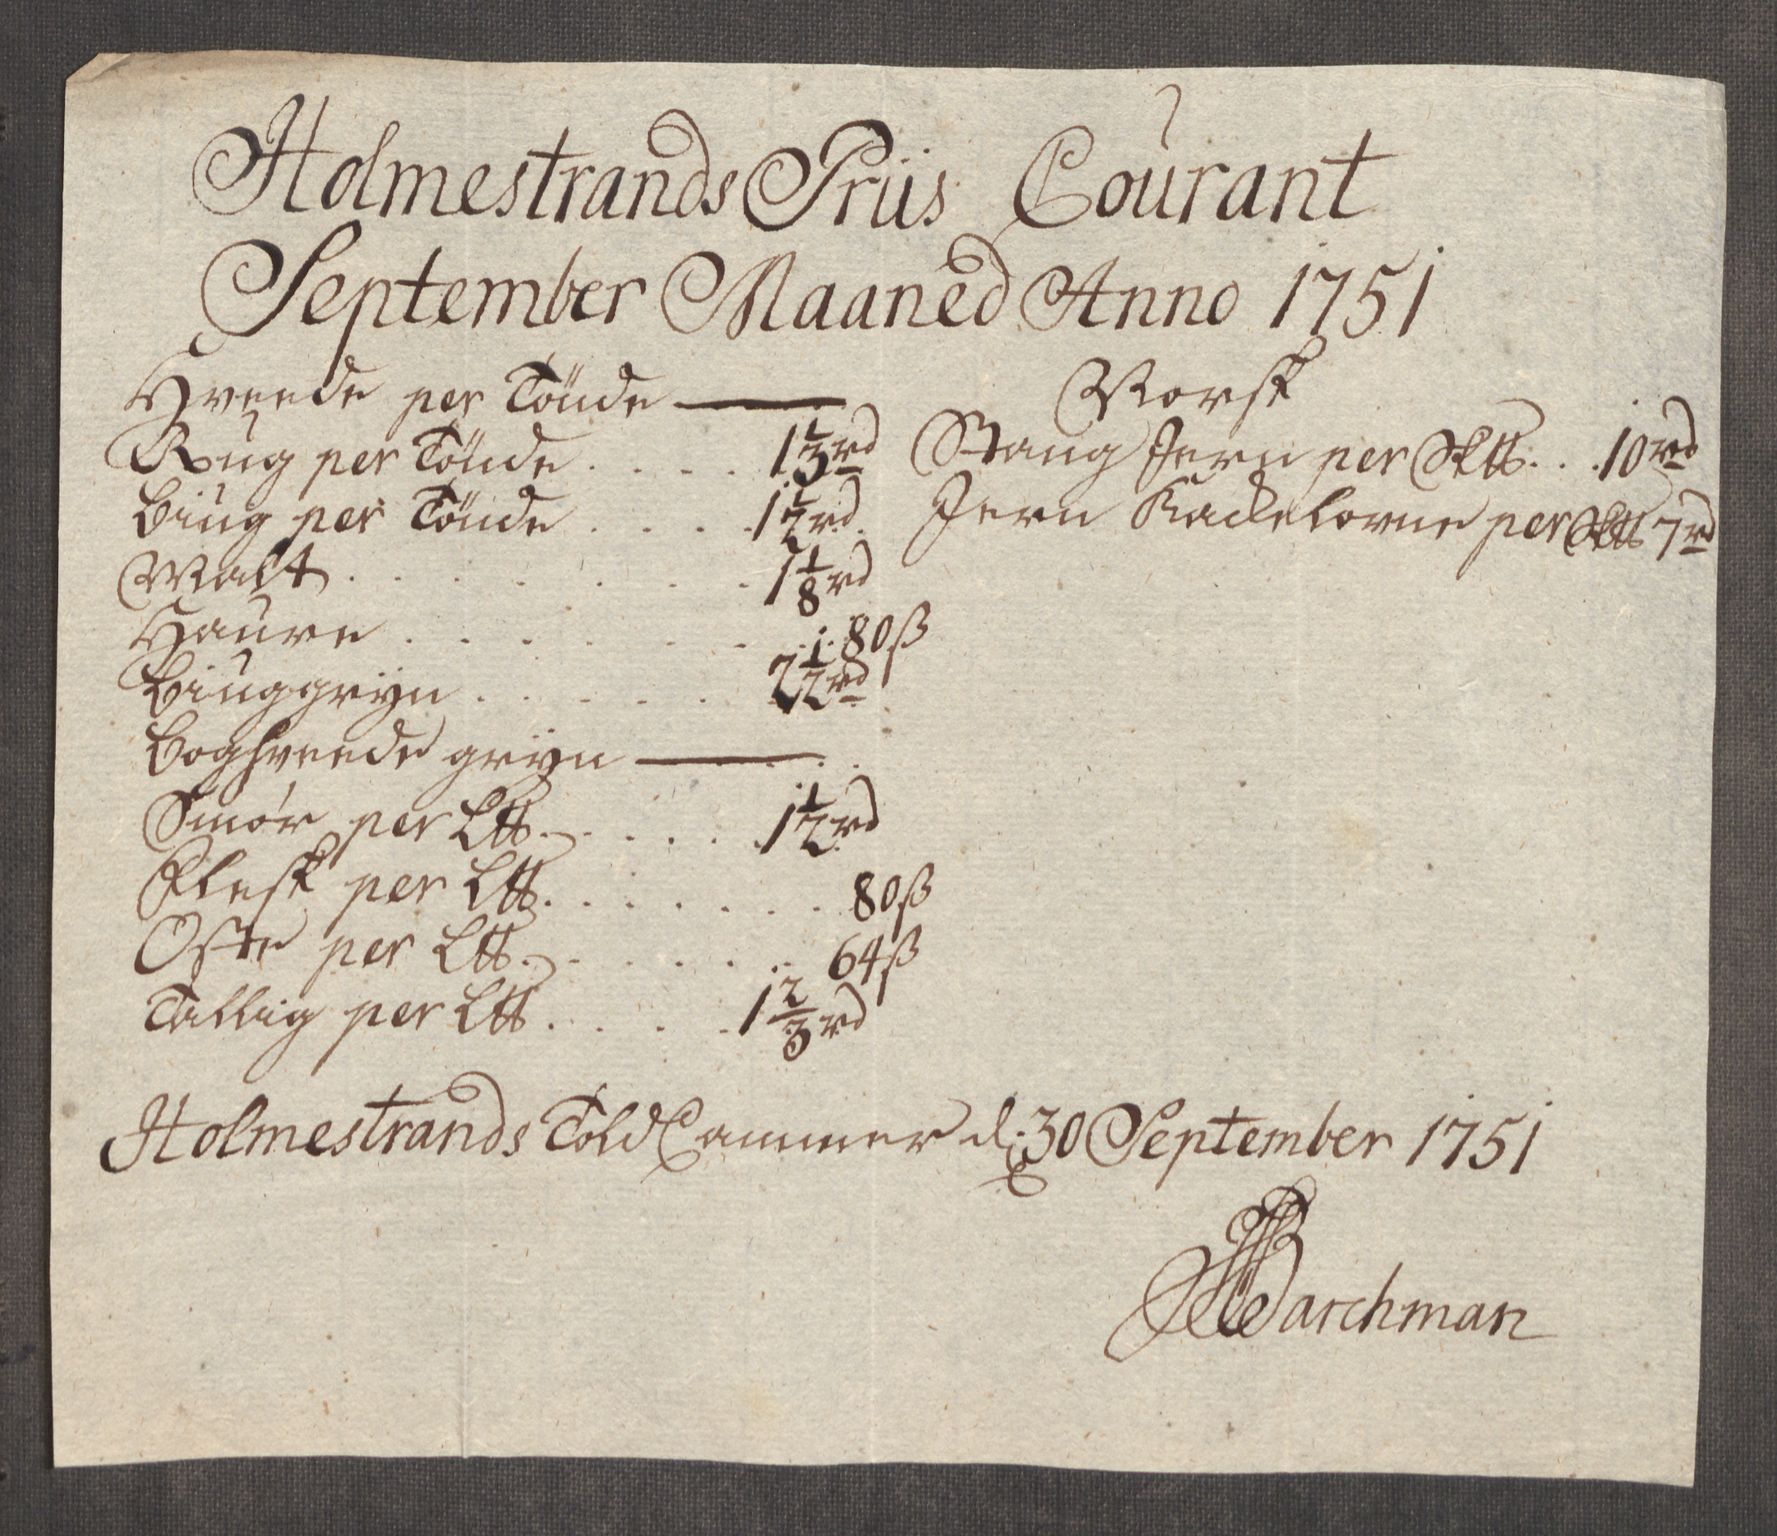 Holmestrands Priis Courant
September Maaned Anno 1751
Hveede per Tönde
Rug per Tönde . . . . 1 1/3 rd
Biug per Tönde . . . . 1 1/2 rd.
Malt . . . . . . . . 1 1/8 rd
Haure . . . . . . . . 80 ß
Biuggryn . . . . . 2 1/2 rd
Boghveede gryn
Smör per L℔. . . . . 1 1/2 rd
Flesk per L℔. . . . . . . 80 ß
Oste per L℔. . . . . . 64 ß
Tallig per L℔. . . . . 1 2/3 rd
Norsk
Stang Jern per Sk℔. . . 10 rd
Jern Kackelovne per Sk℔ 7 rd
Holmestrands Told Cammer d. 30 September 1751
Barchman